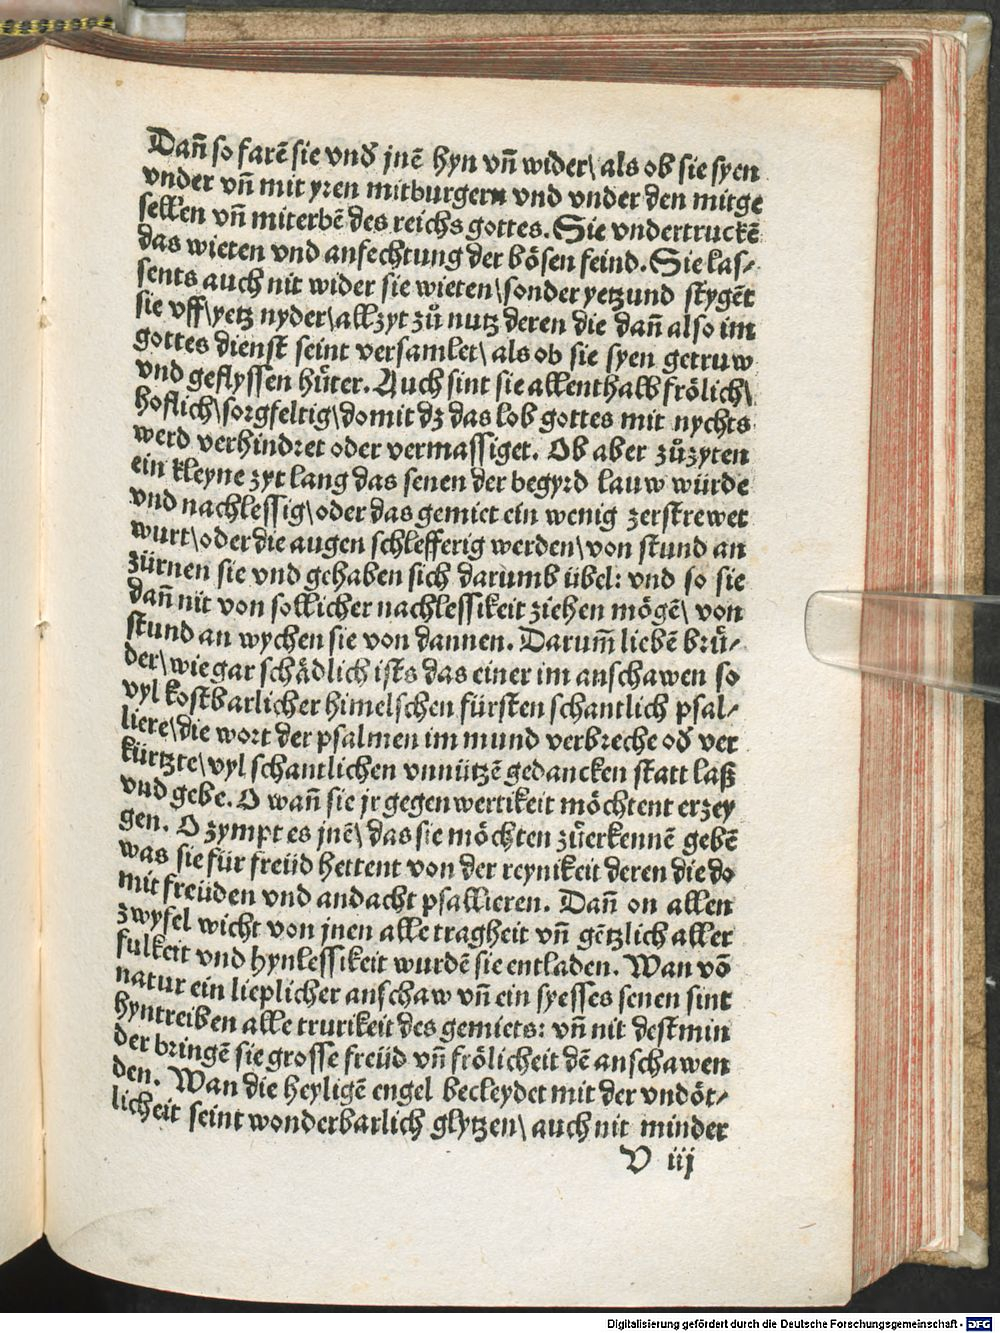 Dañ so farē sie vnd̄ jnē hyn vñ wider\ als ob sie syen
vnder vñ mit yren mitburgern vnd vnder den mitge
sellen vñ miterbē des reichs gottes. Sie vndertruckē
das wieten vnd anfechtung der bösen feind. Sie las⸗
sents auch nit wider sie wieten\ sonder yetzund stygēt
sie vff\ yetz nyder\ allzyt zů nutz deren die dañ also im
gottes dienst seint versamlet\ als ob sie syen getruw
vnd geflyssen hůter. Auch sint sie allenthalb frölich\
hoflich\ sorgfeltig\ domit dz das lob gottes mit nychts
werd verhindret oder vermassiget. Ob aber zůzyten
ein kleyne zyt lang das senen der begyrd lauw würde
vnd nachlessig\ oder das gemiet ein wenig zerstrewet
wurt\ oder die augen schlefferig werden\ von stund an
zürnen sie vnd gehaben sich darumb übel: vnd so sie
dañ nit von sollicher nachlessikeit ziehen mögē\ von
stund an wychen sie von dannen. Darum̄ liebē brü⸗
der\ wie gar schädlich ists das einer im anschawen so
vyl kostbarlicher himelschen fürsten schantlich psal⸗
liere\ die wort der psalmen im mund verbreche od̄ ver
kürtzte\ vyl schantlichen vnnützē gedancken statt laß
vnd gebe. O wañ sie jr gegenwertikeit möchtent erzey
gen. O zympt es jnē\ das sie möchten zůerkennē gebē
was sie für freüd hettent von der reynikeit deren die do
mit freüden vnd andacht psallieren. Dañ on allen
zwyfel wicht von jnen alle tragheit vñ gētzlich aller
fulkeit vnd hynlessikeit wurdē sie entladen. Wan vō
natur ein lieplicher anschaw vñ ein syesses senen sint
hyntreiben alle trurikeit des gemiets: vñ nit destmin
der bringē sie grosse freüd vñ frölicheit dē anschawen
den. Wan die heyligē engel becleydet mit der vndöt⸗
licheit seint wonderbarlich glytzen\ auch nit minder
V iij
Digitalisierung gefördert durch die Deutsche Forschungsgemeinschaft - DFG